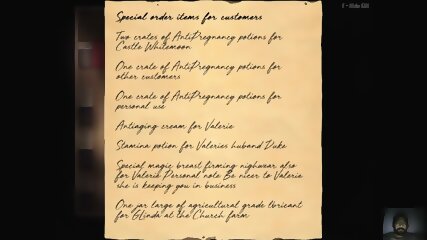 Special order items for customers
Two crates of AntiPregnancy potions for
Castle Whitemoon
One crate of AntiPregnancy potions for
other customers
One crate of AntiPregnancy potions for
personal use
Antiaging cream for Valerie
Stamina potion for Valeries huband Duke
Special magic breast firming nighwear also
for Valerie Personal note Be nicer to Valerie
she is keeping you in business
One jar large of agricultural grade lbricant
for Glinda at the Church farm